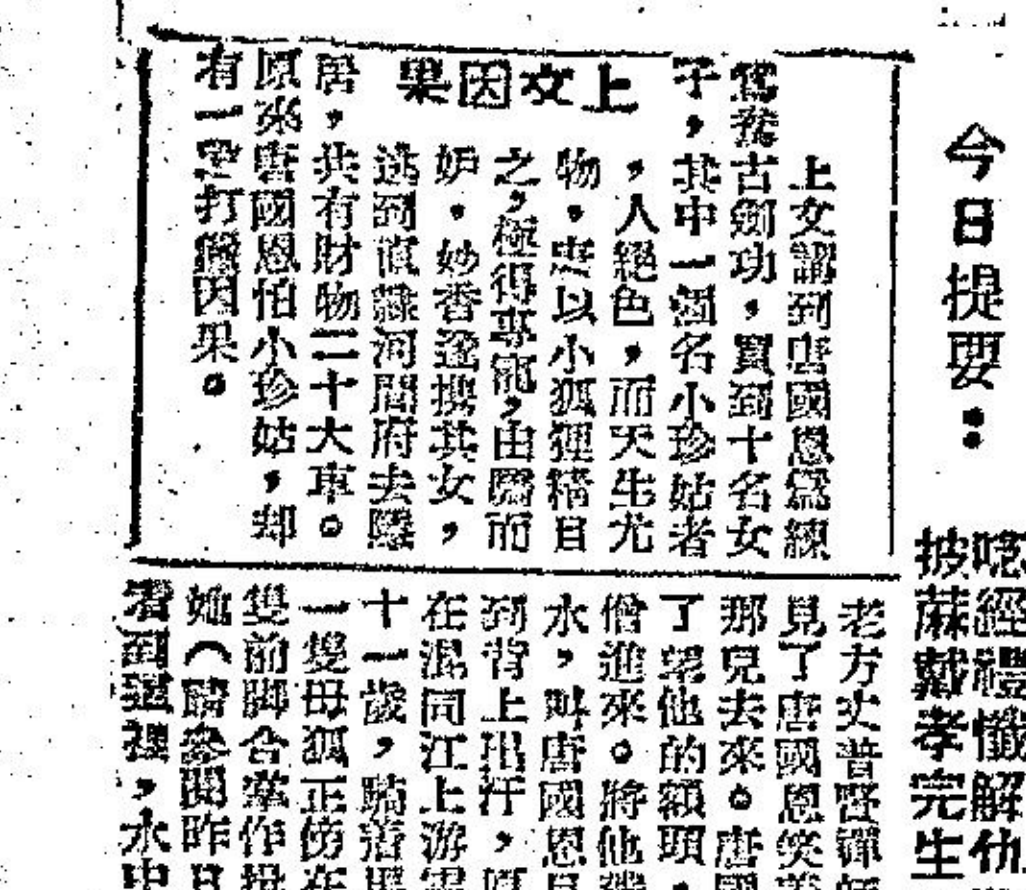 今日提要：
唸經禮懺解仇
披蔴戴孝完生
上文因果
上文謂到唐國恩爲練
鴛鴦古劍功，買到十名女
子，其中一個名小珍姑者
，人絕色，而天生尤
物，唐以小狐狸精目
之，極得專寵，由寵而
妒，妙香遂携其女，
逃到直隸河間府去隱
居，共有財物二十大車。
原來唐國恩怕小珍姑，却
有一段打獵因果。
老方丈普賢禪師
見了唐國恩笑
那兒去來。唐國
了望他的額頭，
僧進來。將他
水，則唐國恩
到背上出汗，
在混同江上游
十一歲，騎着
一隻母狐正傍在
雙前脚合掌作
她（請參閱昨日
看到這裡，水中